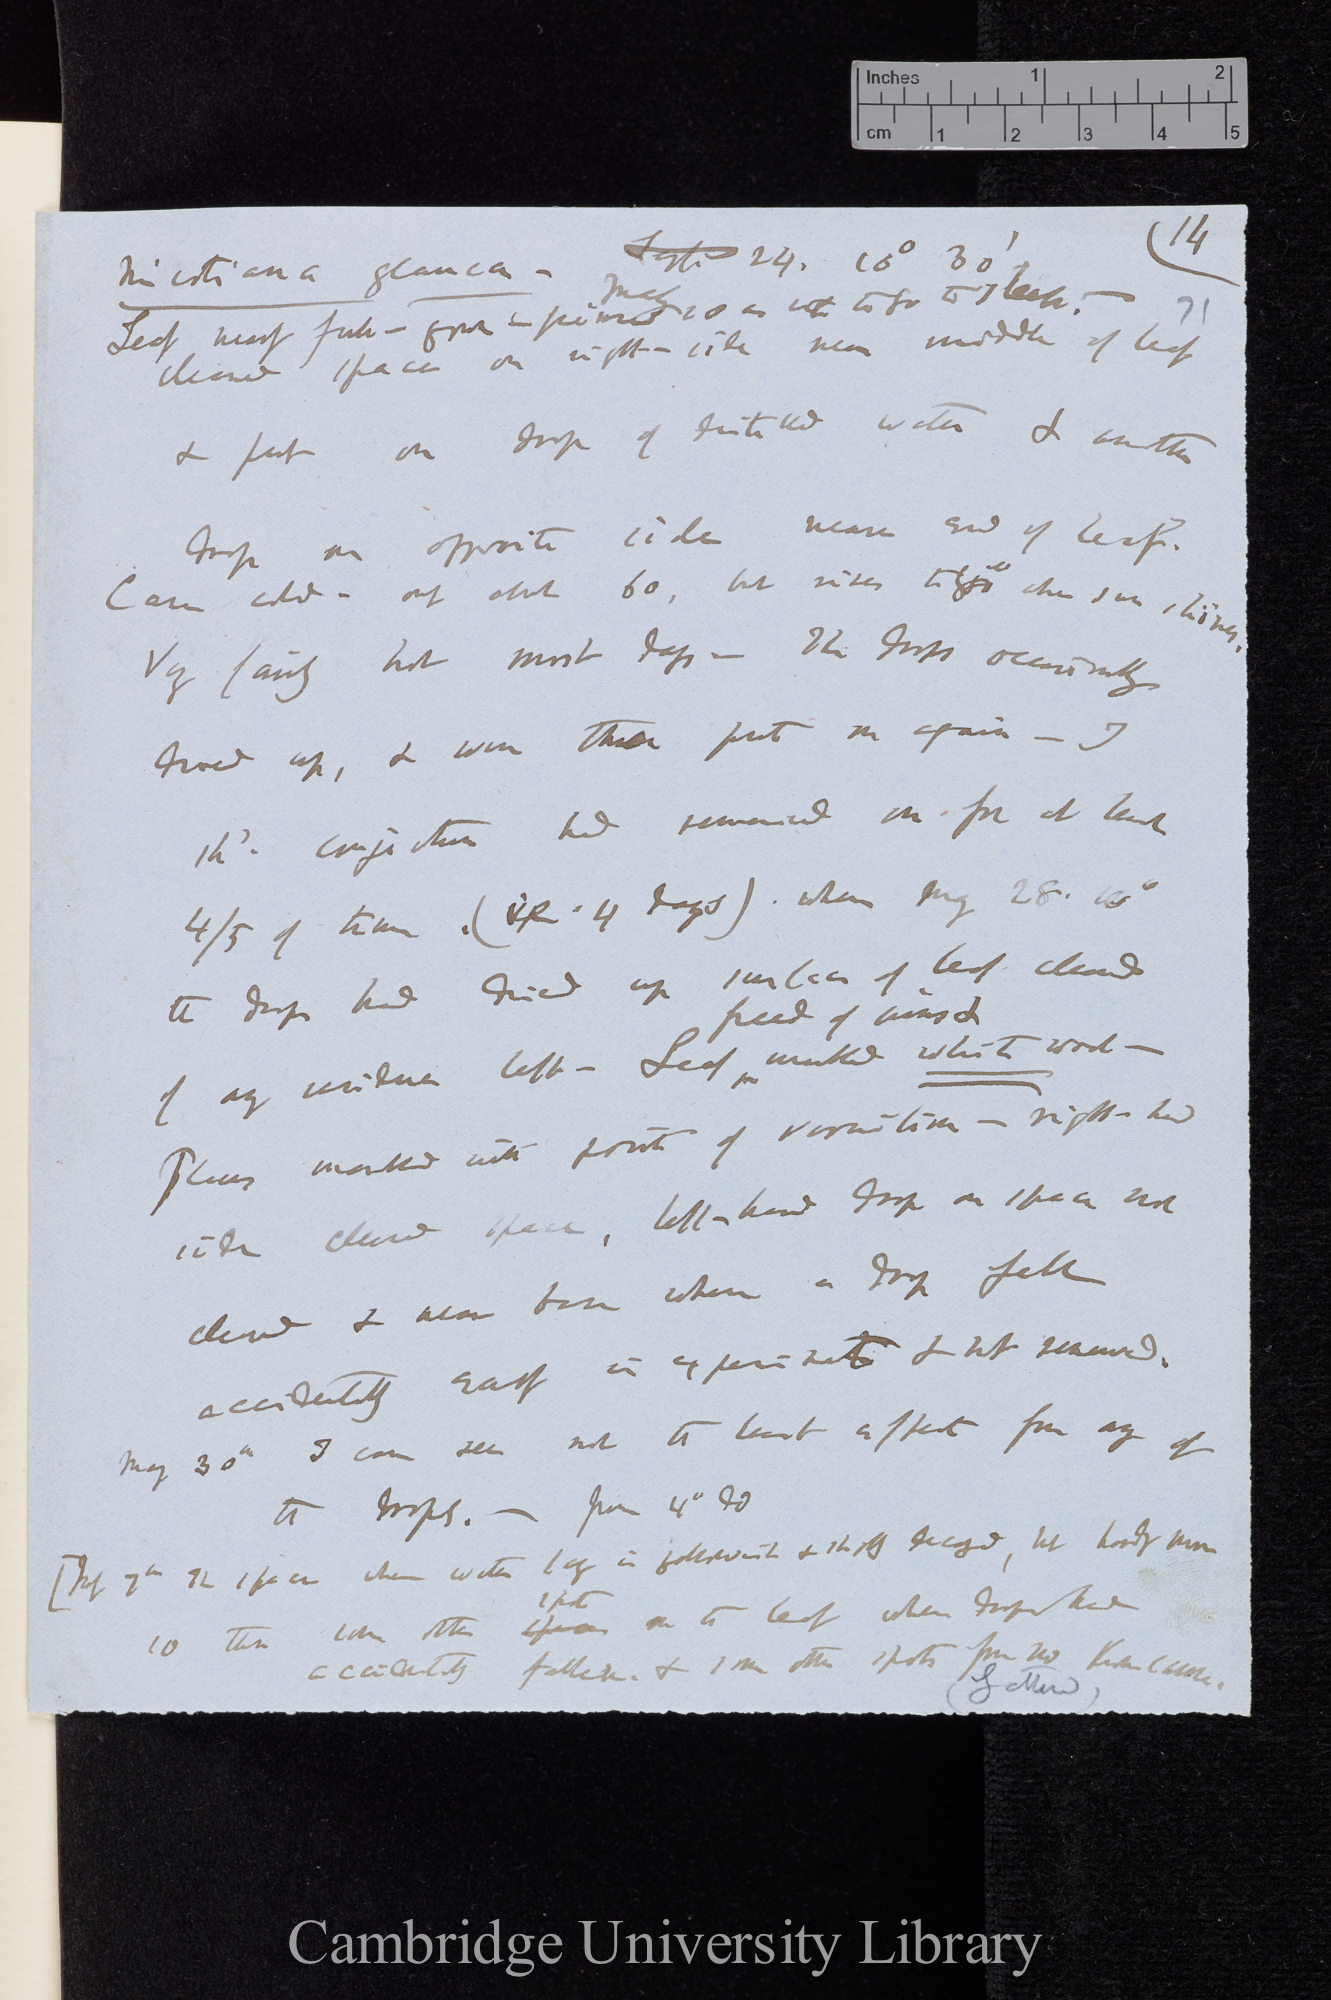 Inches 1 2
cm 1 2 3 4 5
(14
71
Nicotiana glauca — Sept 24. 10° 30'
May
Leaf nearly full-grown pinned so as not to go to sleep. —
cleaned space on right-side near middle of leaf
& put on drop of distilled water & another
drop on opposite side nearer end of leaf.
Case cold - only about 60, but rises to when sun shines.
Very fairly hot most days — The drops occasionally
dried up, & were then put on again — I
shd. conjecture had remained on for at least
4/5 of time. (ie. 4 days). when May 28. 10°
the drops had dried up surface of leaf cleaned
of any residue left — Leaf marked white wool —
freed of pins &
Places marked with points of vermilion — right-hand
side cleaned space, left-hand drop on space not
cleaned & near base where a drop fell
accidentally early in experiment & not removed.
May 30th I can see not the least effect from any of
the drops. — from 4°
[ 7th The space where water lay is yellowish & slightly decayed, but hardly more
spot
so than some other space on the leaf where drops had
accidentally fallen. & some other spots from no known cause.
Cambridge University Library